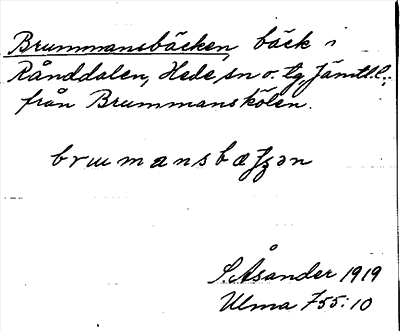 Brummansbäcken, bäck i
Rånddalen, Hede sn o. tg, Jämtl.l.;
från Brummanskölen.
S Åsander 1919
Ulma 755:10